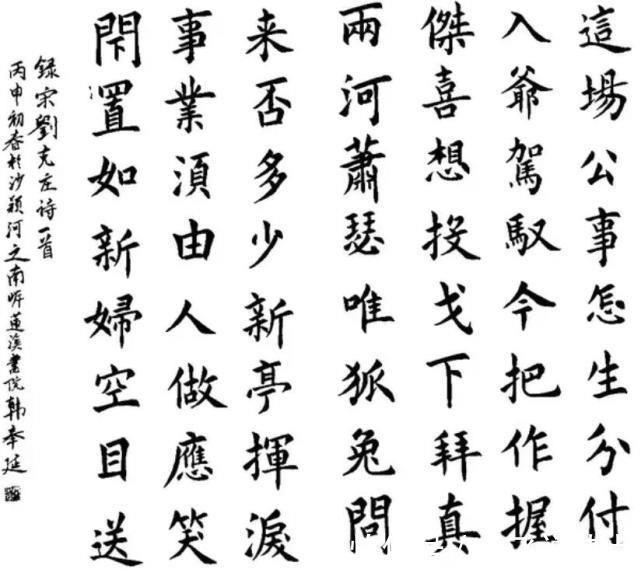 這場公事怎生分付
入爺駕馭今把作握
傑喜想投戈下拜真
兩河蕭瑟唯狐兔問
来否多少新亭揮淚
事業湏由人做應笑
閇置如新婦空目送
録宋劉克庄诗一首
丙申初春於沙颍河之南畔蓮溪書院韩奉延